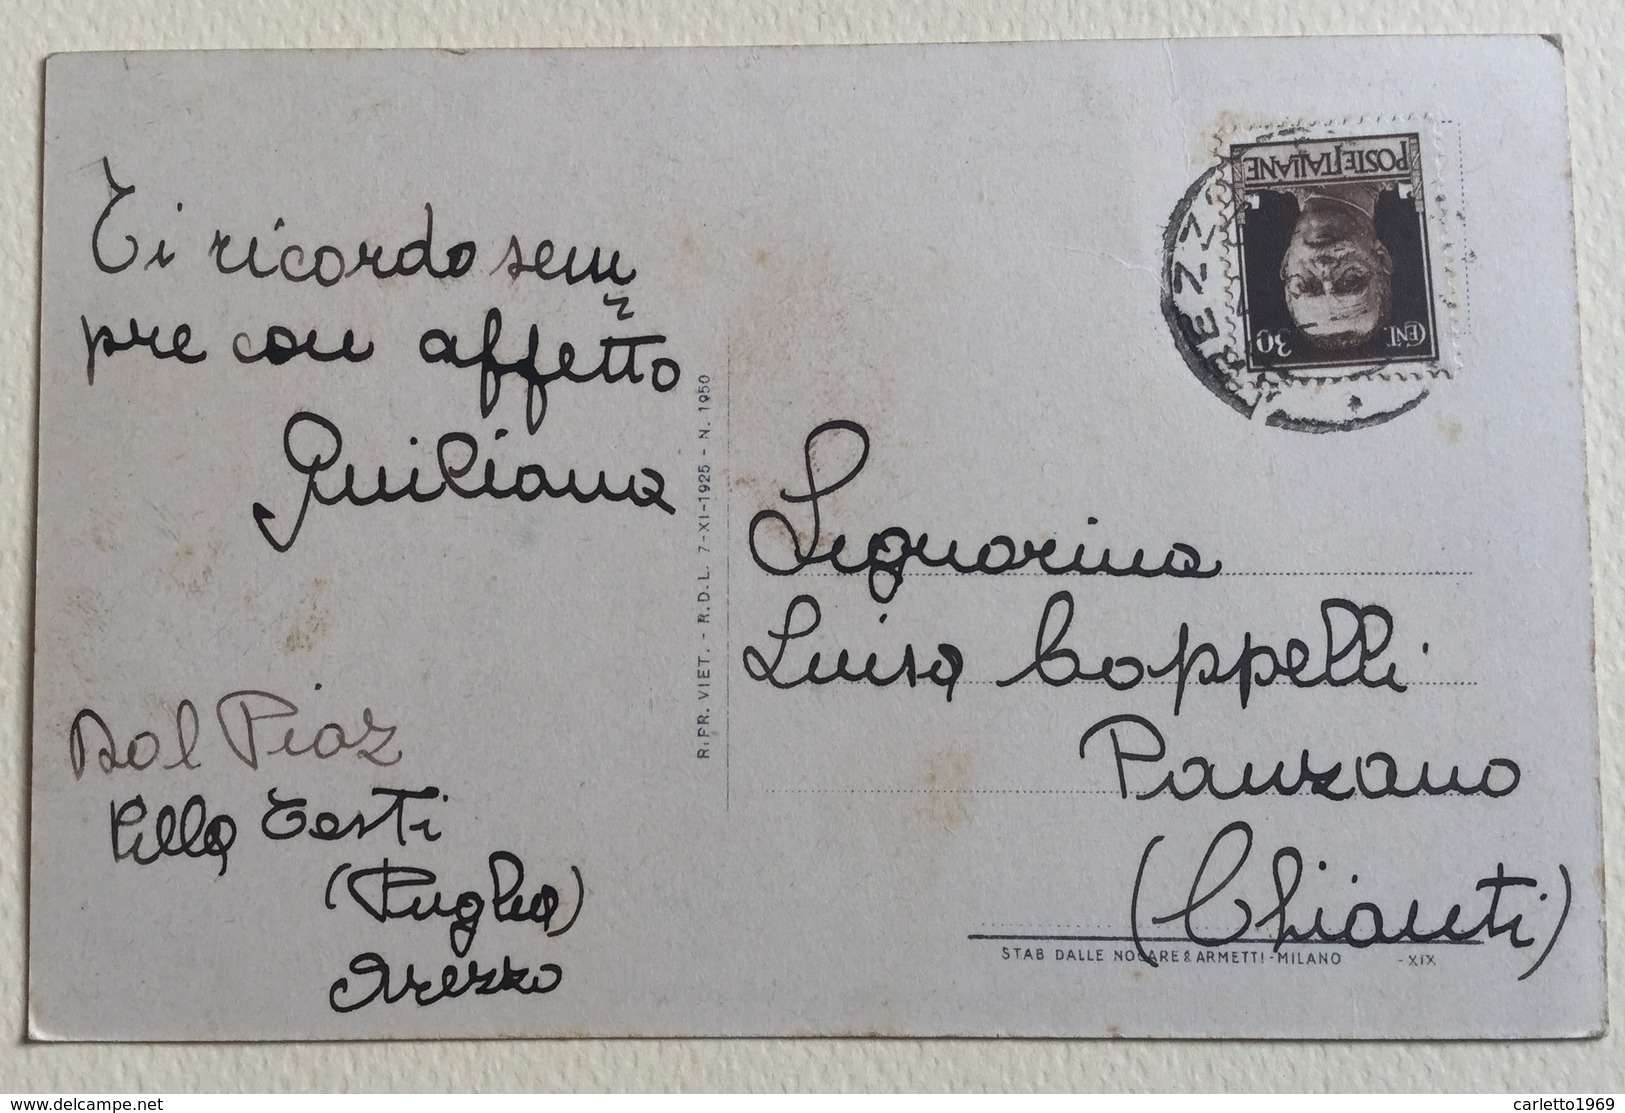 Ti ricordo sem
pre con affetto
Giuliana
Dal Piaz
Villa Testi
(Puglia)
Arezzo
R. PR. VIET. - R.D.L. 7-XI-1925 - N. 1950
POSTE ITALIANE
CENT. 30
AREZZO
Signorina
Luisa Coppelli
Panzano
(Chianti)
STAB DALLE NOGARE & ARMETTI - MILANO -XIX
www.delcampe.net
carletto1969